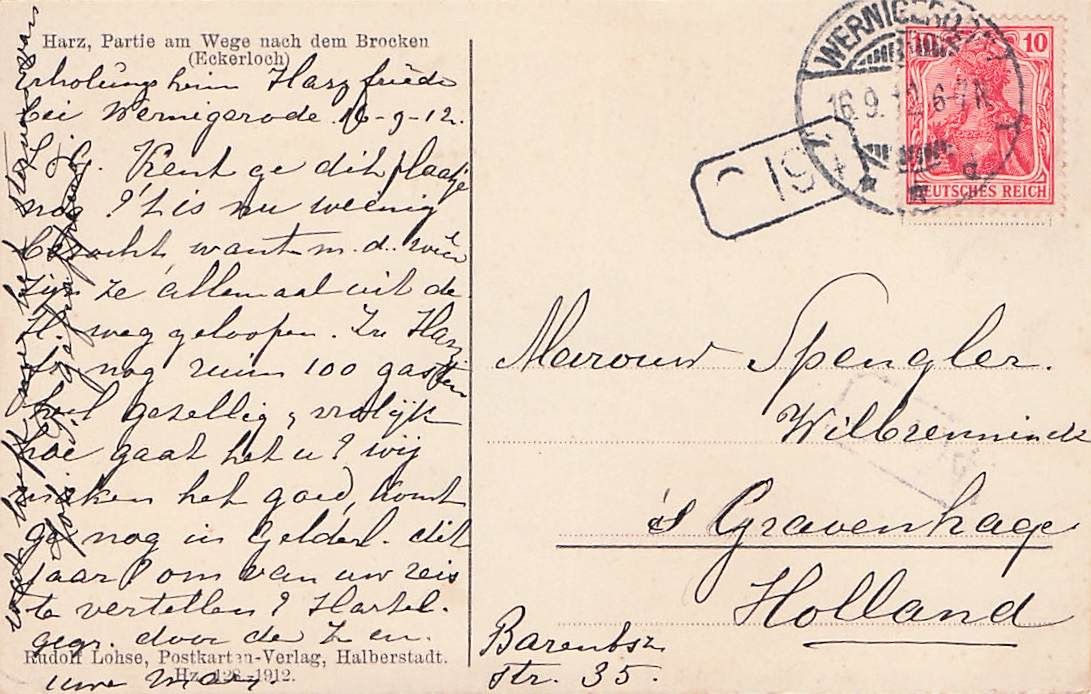 Harz, Partie am Wege nach dem Brocken
(Eckerloch)
Erholungsheim Harzfriede
bei Wernigerode 16-9-12.
L. G. Kent ge dit plaatje
nog? 't is nu weinig
bezocht, want m. d.
zijn ze allemaal uit de
H. weg geloopen. In Harz
nog ruim 100 gasten
heel gezellig & vrolijk
hoe gaat het u? wij
maken het goed, komt
ge nog in Gelderl. dit
jaar? om van uw reis
te vertellen? Hartel.
gegr. door de Z en.
uwe
Rudolf Lohse, Postkarten-Verlag, Halberstadt.
Hz. 128-1912.
WERNIGERO
16.9.12. 6-7N.
a
10 10
DEUTSCHES REICH
194
Mevrouw Spengler.
's Gravenhage
Holland
Barentsz
str. 35.